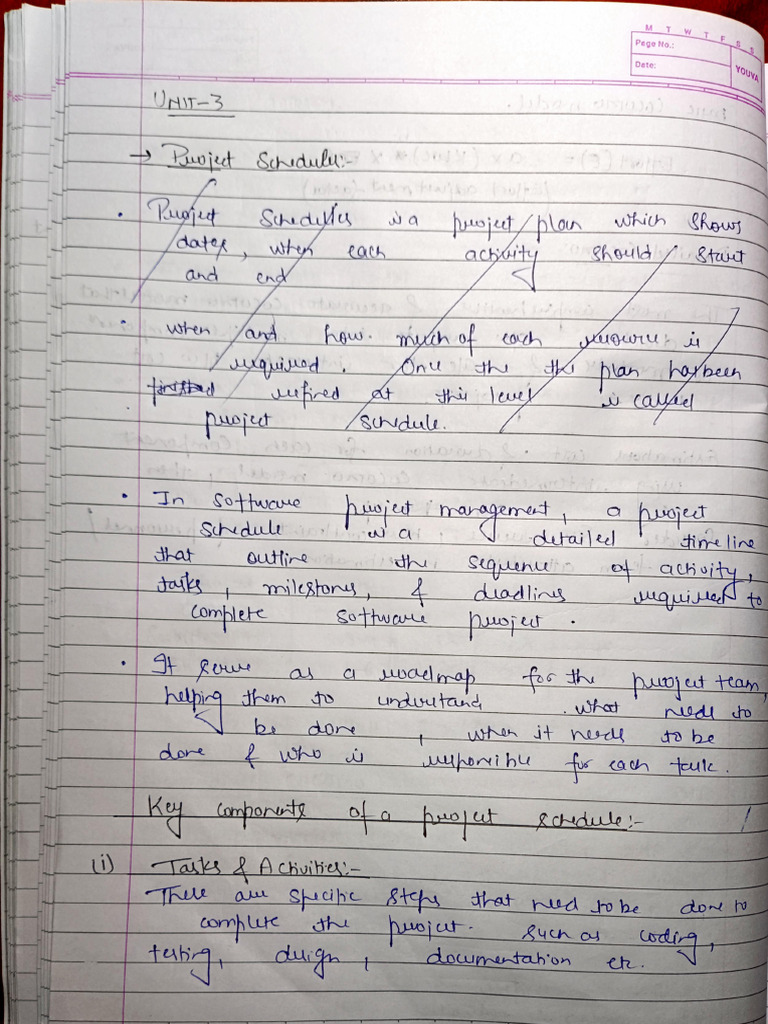 M T W T F S S
Page No.:
Date:
YOUVA
UNIT-3
→ Project Schedule:-
• Project Schedules is a project plan which shows
dates, when each activity should start
and end
• when and how much of each resource is
required. Once the the plan has been
refined at this level is called
project schedule.
• In software project management, a project
schedule is a detailed timeline
that outline the sequence of activity,
tasks, milestones, & deadlines required to
complete software project.
• It serve as a roadmap for the project team,
helping them to understand what needs to
be done, when it needs to be
done & who is responsible for each task.
Key components of a project schedule:-
(i) Tasks & Activities:-
These are specific steps that need to be done to
complete the project. Such as coding,
testing, design, documentation etc.